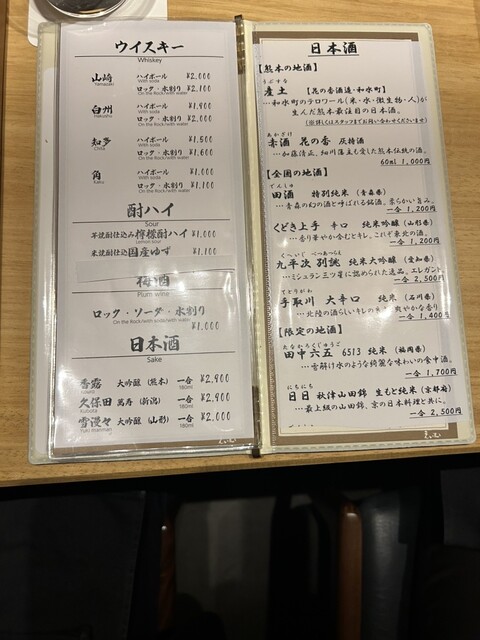 ウイスキー
Whiskey
山崎 ハイボール ¥2,000
Yamazaki With soda
ロック・水割り ¥2,100
On the Rock/with water
白州 ハイボール ¥1,900
Hakushu With soda
ロック・水割り ¥2,000
On the Rock/with water
知多 ハイボール ¥1,500
Chita With soda
ロック・水割り ¥1,600
On the Rock/with water
角 ハイボール ¥1,000
Kaku With soda
ロック・水割り ¥1,100
On the Rock/with water
酎ハイ
Sour
芋焼酎仕込み檸檬酎ハイ ¥1,100
Lemon sour
米焼酎仕込国産ゆず ¥1,100
梅酒
Plum wine
ロック・ソーダ・水割り
On the Rock/with soda/with water
¥1,000
日本酒
Sake
香露 大吟醸 (熊本) 一合 ¥2,900
180ml
久保田 萬寿 (新潟) 一合 ¥2,900
Kubota 180ml
雪漫々 大吟醸 (山形) 一合 ¥2,000
Yuki manman 180ml
日本酒
【熊本の地酒】
うぶすな
産土 【花の香酒造・和水町】
…和水町のテロワール(米・水・微生物・人)が
生んだ熊本最注目の日本酒。
(※詳しくはスタッフまでお問い合わせくださいませ)
あかざけ
赤酒 花の香 灰持酒
…加藤清正、細川藩主も愛した熊本伝統の酒。
60ml 1,000円
【全国の地酒】
でんしゅ
田酒 特別純米 (青森県)
…青森の幻の酒と呼ばれる銘酒。柔らかい旨み。
一合 1,200円
くどき上手 辛口 純米吟醸 (山形県)
…香り華やか含むとキレ。これぞ東北の酒。
一合 1,200円
くへいじ べつあつらえ
九平次 別誂 純米大吟醸 (愛知県)
…ミシュラン三ツ星に認められた逸品。エレガント
一合 2,500円
てどりがわ
手取川 大辛口 純米 (石川県)
…北陸の酒らしいキレのある爽やかな香り
一合 1,400円
【限定の地酒】
たなかろくじゅうご
田中六五 6513 純米 (福岡県)
…雪解け水のような綺麗な味わいの食中酒。
一合 1,700円
にちにち
日日 秋津山田錦 生もと純米 (京都府)
…最上級の山田錦、京の日本料理と共に。
一合 2,500円